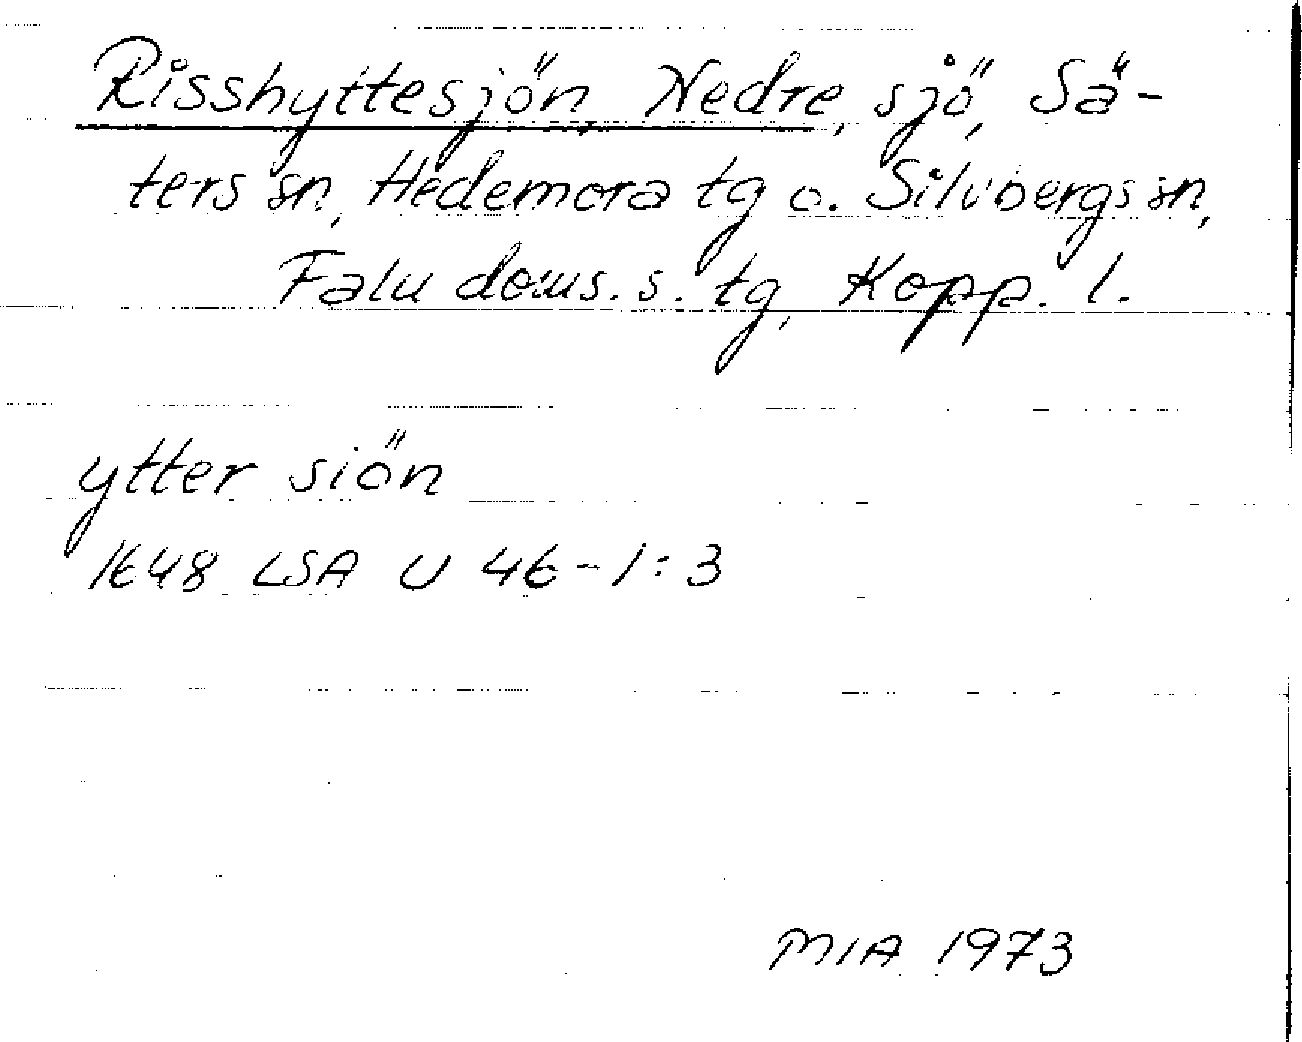 Risshyttesjön, Nedre, sjö, Sä-
ters sn, Hedemora tg o. Silvbergs sn,
Falu doms. s. tg, Kopp. l.
ytter siön
1648 LSA U 46-1:3
MIA 1973